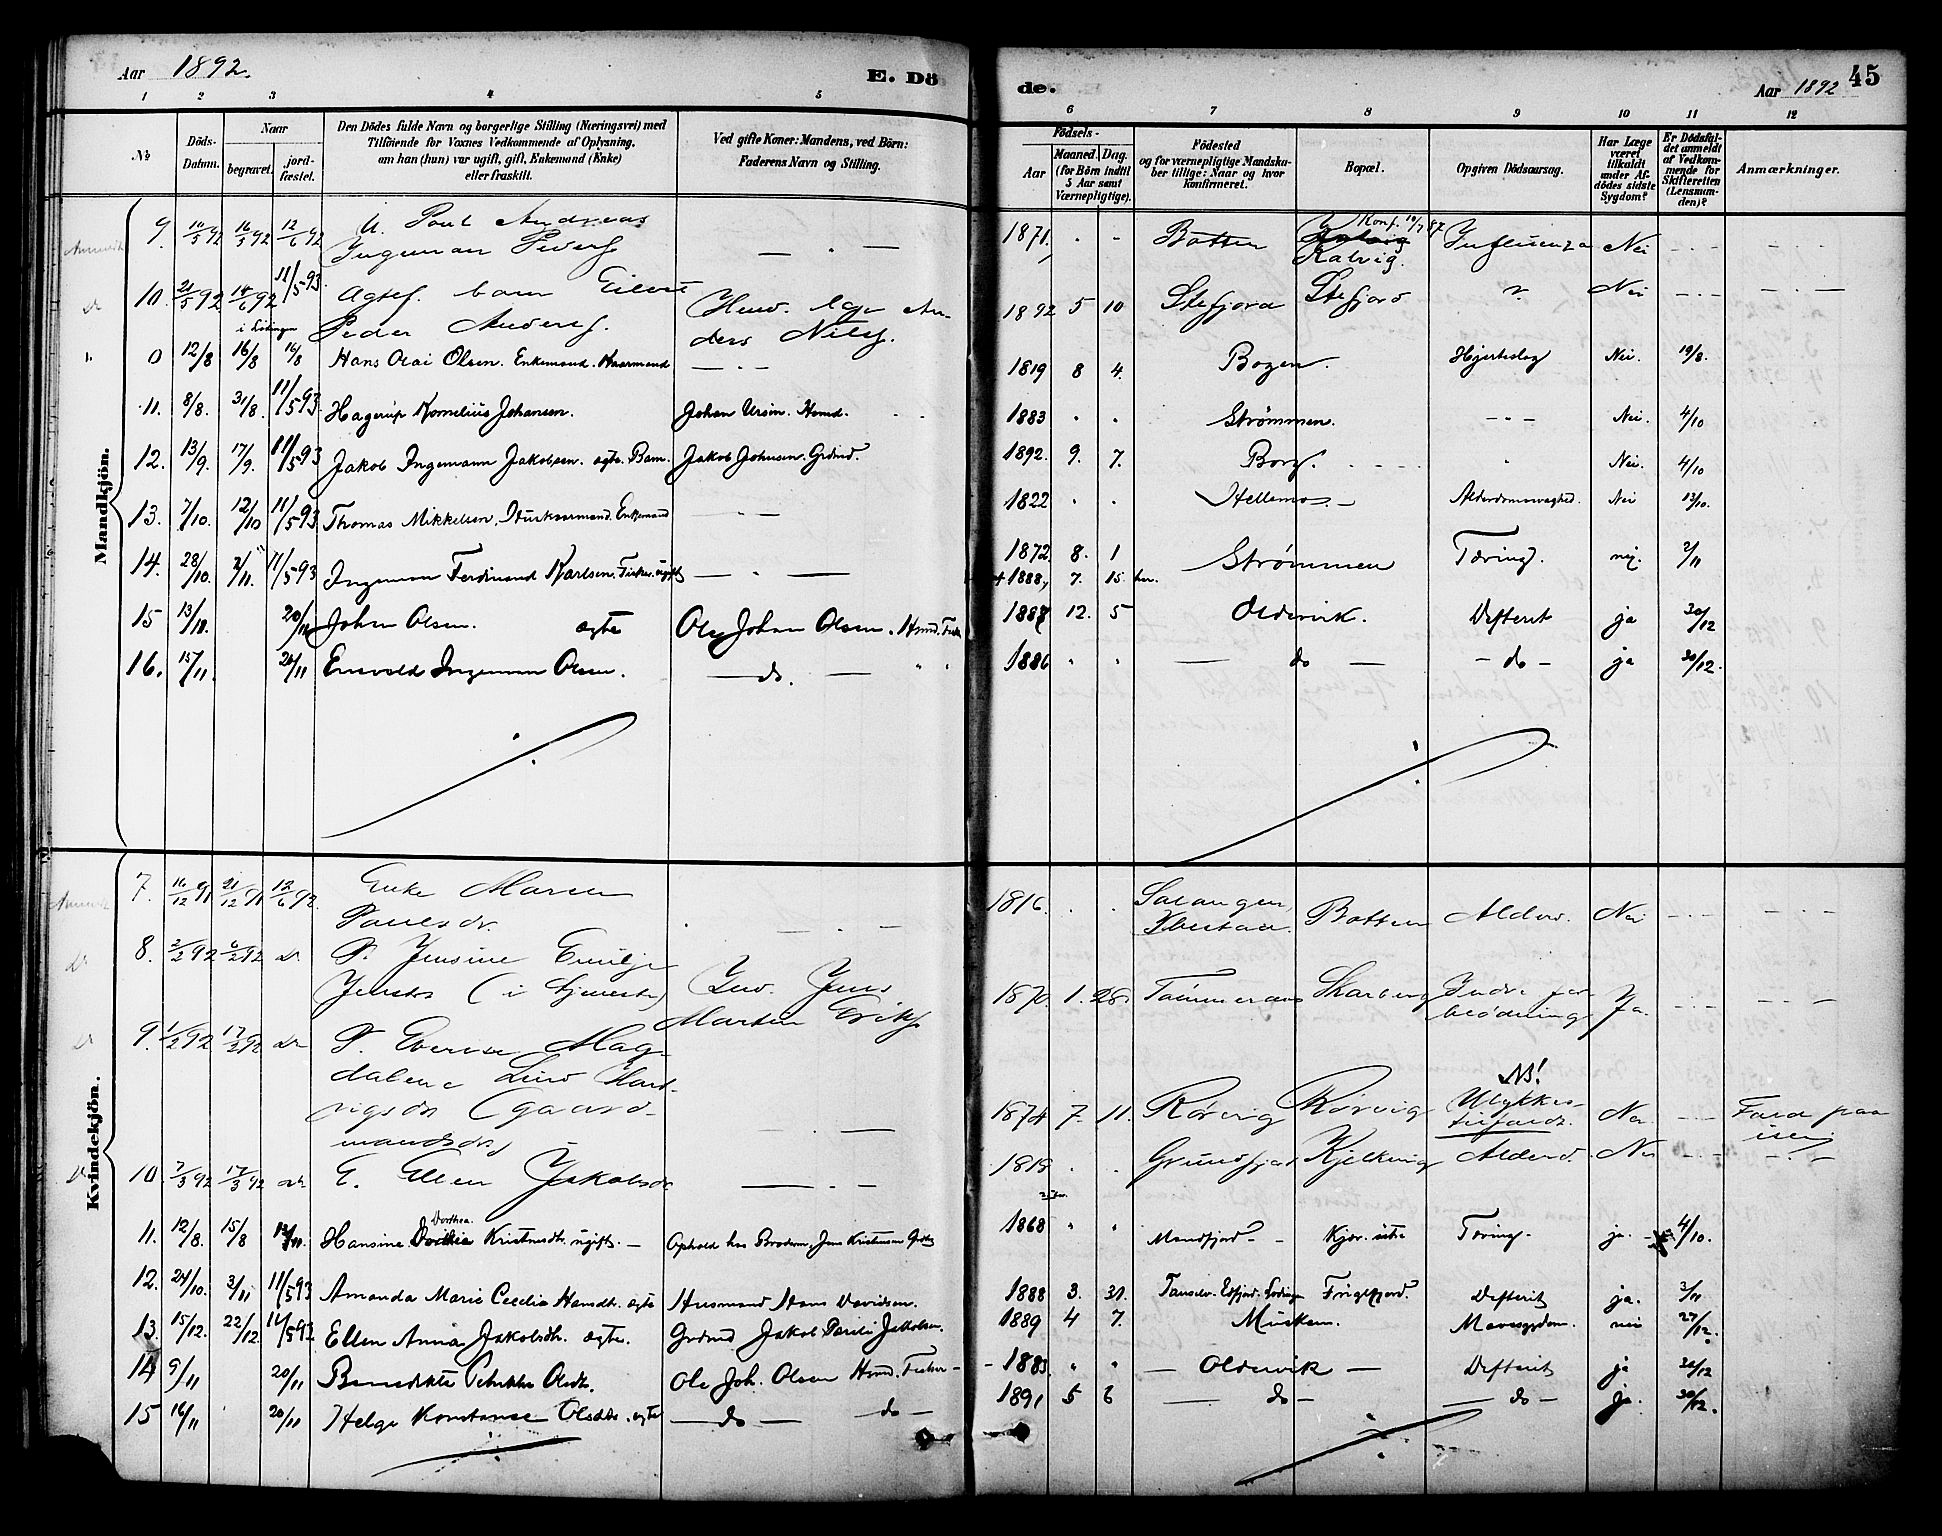 Aar 1892.
E. Dö
de.
Aar 1892
45
1 2 3 4 5 6 7 8 9 10 11 12
No.
Döds-Datum.
Naar
begravet.
jordfæstet.
Den Dödes fulde Navn og borgerlige Stilling (Næringsvei) med
Tilföiende for Voxnes Vedkommende af Oplysning,
om han (hun) var ugift, gift, Enkemand (Enke)
eller fraskilt.
Ved gifte Koner: Mandens, ved Börn:
Faderens Navn og Stilling.
Födsels-
Aar
Maaned. Dag.
(for Börn indtil
5 Aar samt
Værnepligtige).
Födested
og for værnepligtige Mandskaber tillige: Naar og hvor
konfirmeret.
Bopæl.
Opgiven Dödsaarsag.
Har Læge
været
tilkaldt
under Afdödes sidste
Sygdom?
Er Dödsfaldet anmeldt
af Vedkommende for
Skifteretten
(Lensmanden)?
Anmærkninger.
Mandkjön.
9. 10/5 92 16/5 92 12/6 92 U. Paul Andreas
Ingeman Peders. 1871. Botten Konf. 10/7 87
Kalvig. Influenza Nei
10. 21/5 92 14/6 92 11/5 93 Ægtef. barn Eilert
Peder Anders. Husm. Anders Nils. 1892 5 10 Stefjord Stefjord ? Nei
i Lødingen
0 12/8 16/8 16/8 Hans Olai Olsen. Enkemand. 1819 8 4. Bogen. Hjerteslag Nei. 19/8.
11. 8/8. 31/8. 11/5 93 Hagerup Kornelius Johansen. Johan Ursin. Husmd. 1883 Strømmen. Nei. 4/10
12. 13/9. 17/9. 11/5 93 Jakob Ingemann Jakobsen. ægte. Barn. Jakob Johnsen. Grdmd. 1892. 9. 7. Borg. Nei. 4/10
13. 7/10. 12/10 11/5 93 Thomas Mikkelsen. Enkemand 1822 Hellemo Alderdomssvaghed. Nei 13/10.
14. 28/10. 2/11. 11/5 93 Ingeman Ferdinand Karlsen. Fisker. ugift 1872 8. 1 Strømmen Tæring. nej. 2/11
1888, 7. 15. her.
15 13/11. 20/11 Johan Olsen. ægte Ole Johan Olsen. Husmd. Fisk. 1887 12. 5 Oldervik. Difterit ja 30/12
16. 15/11. 20/11 Ensvold Ingeman Olsen. — do. — 1886 — do — — do — ja 30/12.
Kvindekjön.
7. 16/12 91 21/12 91 12/6 92. Enke Maren
Paulsdr. 1816. Salangen
Ibestad. Botten Alderd. Nei
8. 2/2 92 6/2 92 do. P. Jensine Emilje
Jensdr (i tjeneste) Ind. Jens
Martin Eriks. 1870. 1. 28. Tømmeraas Skarberg Indre forblødning Ja.
9. 1/2 92 17/2 92 do P. Magdalene
Hartvigsdr (gaardmandsdr) 1874 7. 11. Rørvig Rørvig NB!
Ulykkestilfælde. Nei Fald paa
isen
10. 7/3 92 17/3 92 do E. Ellen Jakobsdr 1818 Grundfjord Kjelkvig Alderd. Nei
11. 12/8. 15/8 Hansine Dorthea Kristnsdtr. ugift. — Ophold hos Broderen Jens Kristensen 1868 Mandfjord Tæring. ja. 4/10.
12. 24/10. 3/11 11/5 93 Amanda Marie Cecilia Hansdtr. ægte Husmand Hans Davidsen. 1888 3. 31. Difterit ja. 3/11
13. 15/12. 22/12. 14/5 93. Ellen Anna Jakobsdtr. ægte. Grdmd Jakob Jakobsen. 1889 4 7. Musken. Mavesygdom. nei 27/12.
14 9/11 20/11 Benedikte Petrikke Olsdtr. Ole Joh. Olsen Husmd. Fisker — 1883. — Oldervik — Difterit ja 30/12
15 16/11 20/11 Helga Konstanse Olsdtr. ægte — do — do — 1891 5 6 — do — — do — ja. 30/12.